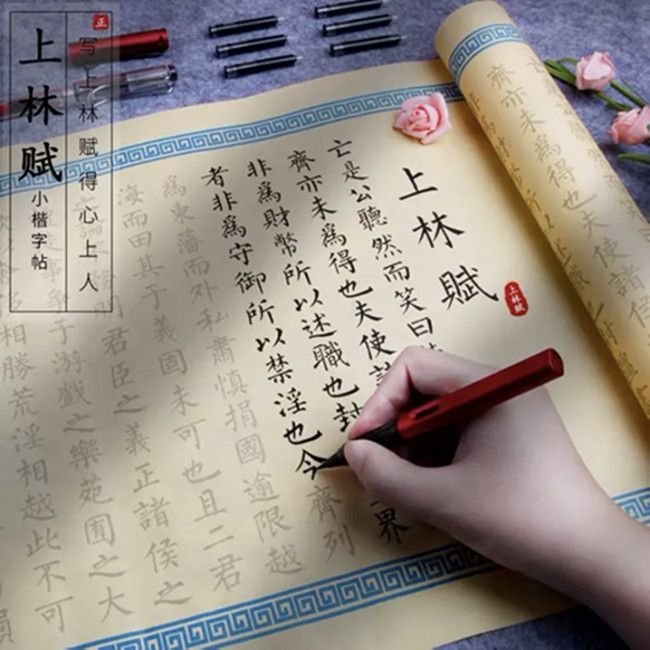 正
写上林赋得心上人
上林赋
小楷字帖
上林賦
上林赋
亡是公聽然而笑曰
齊亦未爲得也夫使諸
界
非爲財幣所以述職也封
者非爲守御所以禁淫也今齊列
爲東藩而外私肅慎捐國逾限越
海而田其于義固未可也且二君
論
明君臣之義正諸侯之
事爭于游戲之樂苑囿之大
相勝荒淫相越此不可
齊亦未爲得也夫使諸侯